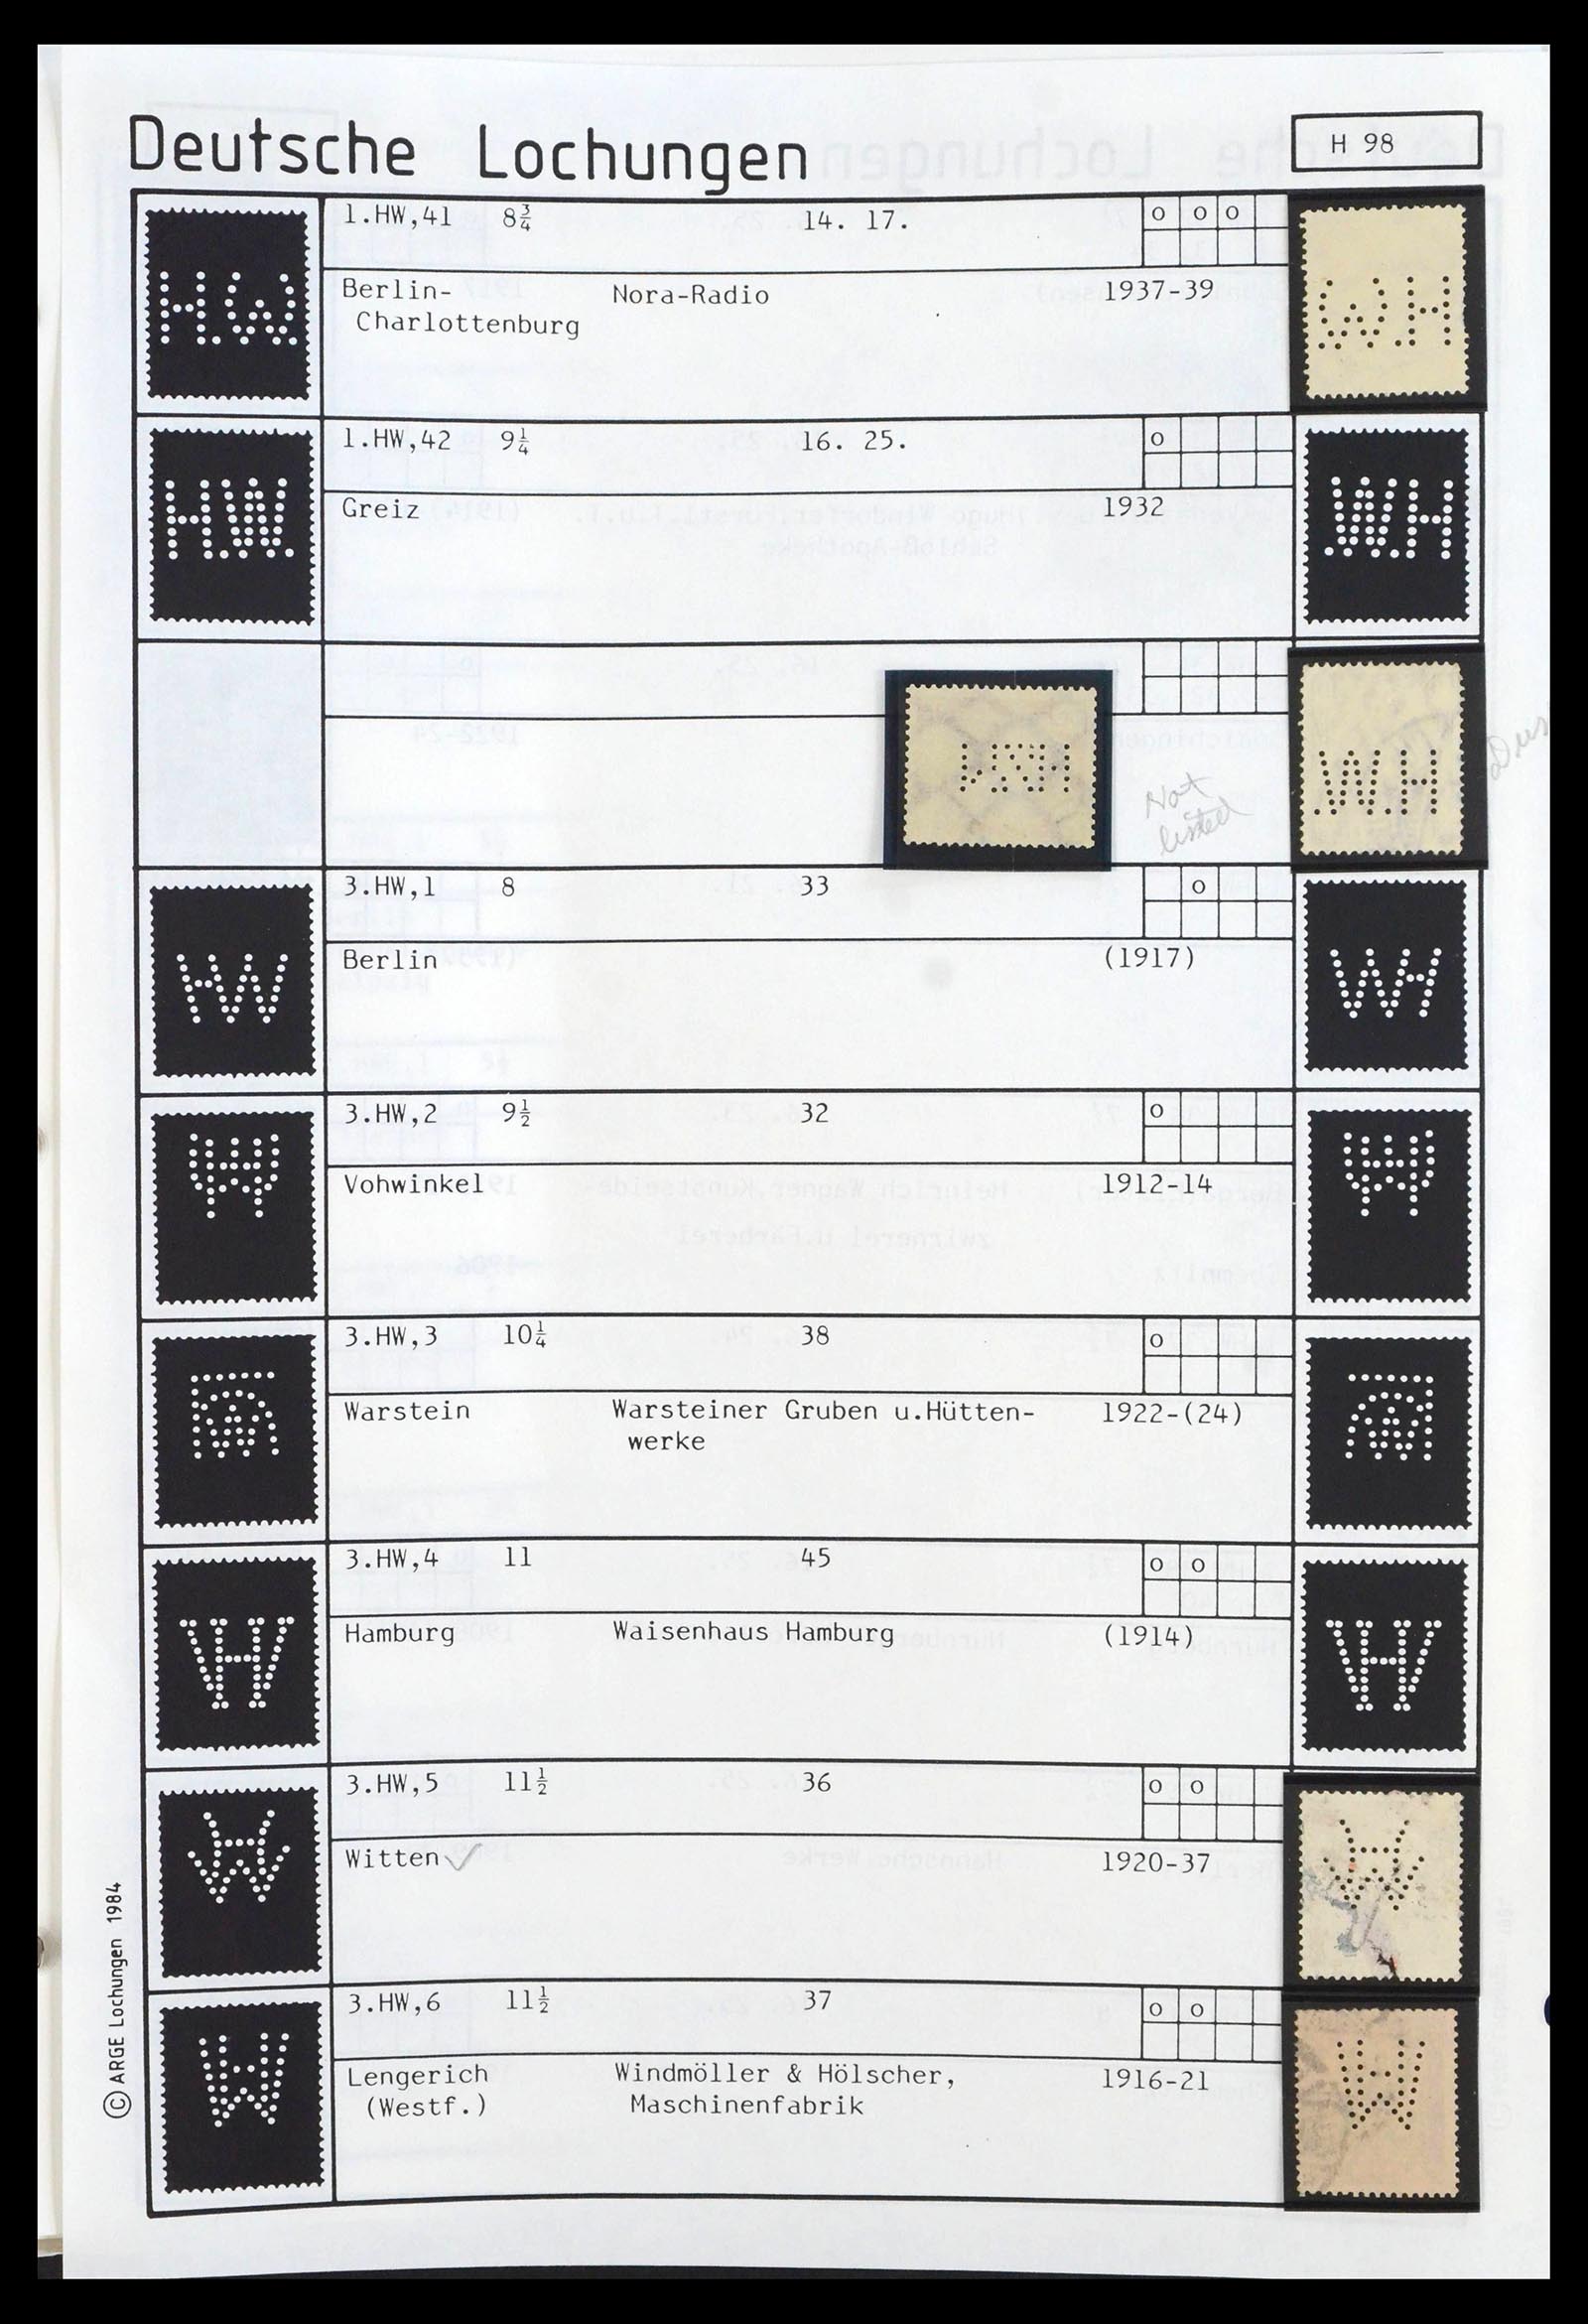 Deutsche Lochungen
H 98
1.HW,41 8¾ 14. 17. o o o
Berlin- Nora-Radio 1937-39
Charlottenburg
1.HW,42 9¼ 16. 25. o
Greiz 1932
Not
listed
3.HW,1 8 33 o
Berlin (1917)
3.HW,2 9½ 32 o
Vohwinkel 1912-14
3.HW,3 10¼ 38 o
Warstein Warsteiner Gruben u.Hütten- 1922-(24)
werke
3.HW,4 11 45 o o
Hamburg Waisenhaus Hamburg (1914)
3.HW,5 11½ 36 o o
Witten 1920-37
3.HW,6 11½ 37 o o
Lengerich Windmöller & Hölscher, 1916-21
(Westf.) Maschinenfabrik
© ARGE Lochungen 1984